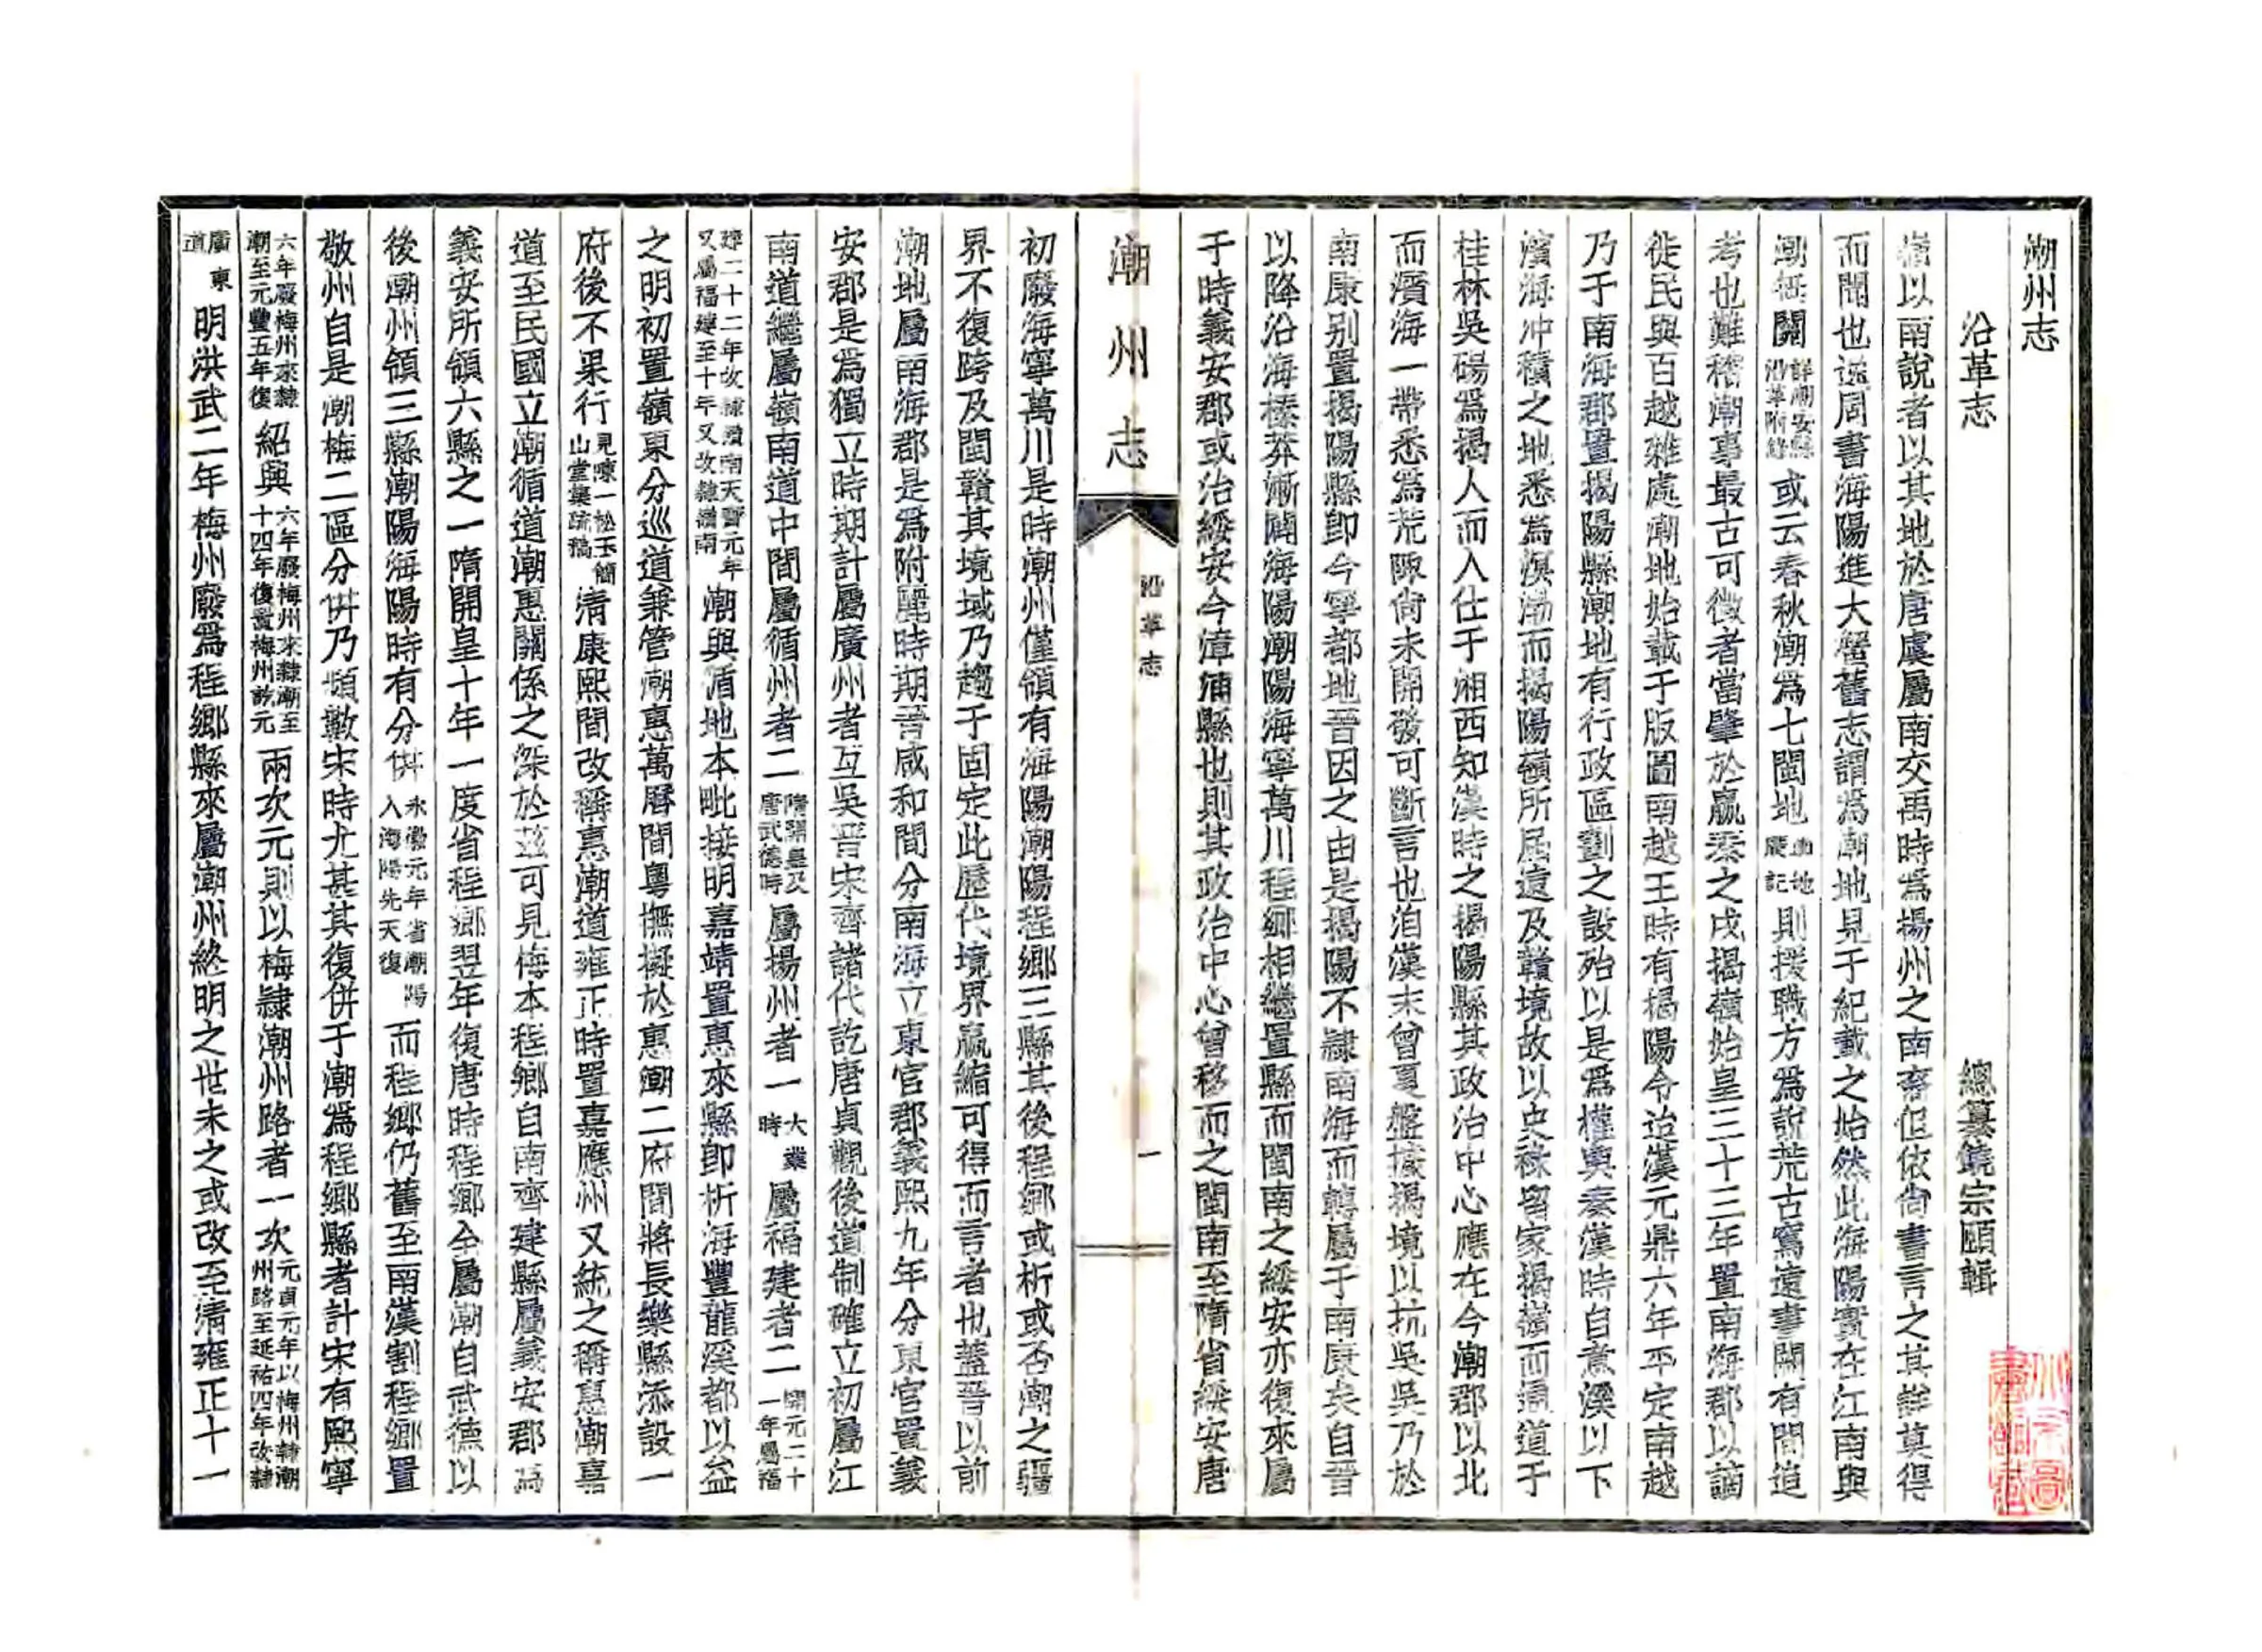 潮州志
沿革志　總纂饒宗頤輯
嶺以南說者以其地於唐虞屬南交禹時爲揚州之南裔但依尙書言之其詳莫得
而聞也逸周書海陽進大蟹舊志謂爲潮地見于紀載之始然此海陽實在江南與
潮無關詳潮安縣沿革附錄或云春秋潮爲七閩地輿地廣記則援職方爲說荒古寫遠書闕有間迨
考也難稽潮事最古可徵者當肇於嬴秦之戍揭嶺始皇三十三年置南海郡以謫
徙民與百越雜處潮地始載于版圖南越王時有揭陽令迨漢元鼎六年平定南越
乃于南海郡置揭陽縣潮地有行政區劃之設殆以是爲權輿秦漢時自意溪以下
濱海冲積之地悉爲溟渤而揭陽嶺所屆遠及贛境故以史祿留家揭嶺而通道于
桂林吳碭爲揭人而入仕于湘西知漢時之揭陽縣其政治中心應在今潮郡以北
而濱海一帶悉爲荒陬尙未開發可斷言也洎漢末曾夏盤據揭境以抗吳吳乃於
南康别置揭陽縣卽今寧都地晉因之由是揭陽不隸南海而轉屬于南康矣自晉
以降沿海榛莽漸闢海陽潮陽海寧萬川程鄉相繼置縣而閩南之綏安亦復來屬
于時義安郡或治綏安今漳浦縣也則其政治中心曾移而之閩南至隋省綏安唐
潮州志　沿革志　一
初廢海寧萬川是時潮州僅領有海陽潮陽程鄉三縣其後程鄉或析或否潮之疆
界不復跨及閩贛其境域乃趨于固定此歷代境界嬴縮可得而言者也蓋晉以前
潮地屬南海郡是爲附麗時期晉咸和間分南海立東官郡義熙九年分東官置義
安郡是爲獨立時期計屬廣州者互吳晉宋齊諸代訖唐貞觀後道制確立初屬江
南道繼屬嶺南道中間屬循州者二隋開皇及唐武德時屬揚州者一大業時屬福建者二開元二十一年屬福
建二十二年改隸嶺南天寶元年又屬福建至十年又改隸嶺南潮與循地本毗接明嘉靖置惠來縣卽析海豐龍溪都以益
之明初置嶺東分巡道兼管潮惠萬曆間粵撫擬於惠潮二府間將長樂縣添設一
府後不果行見陳一松玉簡山堂集疏稿清康熙間改稱惠潮道雍正時置嘉應州又統之稱惠潮嘉
道至民國立潮循道潮惠關係之深於茲可見梅本程鄉自南齊建縣屬義安郡爲
義安所領六縣之一隋開皇十年一度省程鄉翌年復唐時程鄉全屬潮自武德以
後潮州領三縣潮陽海陽時有分併永徽元年省潮陽入海陽先天復而程鄉仍舊至南漢割程鄉置
敬州自是潮梅二區分併乃頻數宋時尤甚其復併于潮爲程鄉縣者計宋有熙寧
六年廢梅州來隸潮至元豐五年復紹興六年廢梅州來隸潮至十四年復置梅州訖元兩次元則以梅隸潮州路者一次元貞元年以梅州隸潮州路至延祐四年改隸
廣東道明洪武二年梅州廢爲程鄉縣來屬潮州終明之世未之或改至清雍正十一